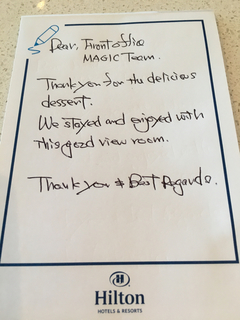 Dear, Front office
MAGIC Team.
Thank you for the delicious
dessert.
We stayed and enjoyed with
this good view room.
Thank you & Best Regards.
H
Hilton
HOTELS & RESORTS